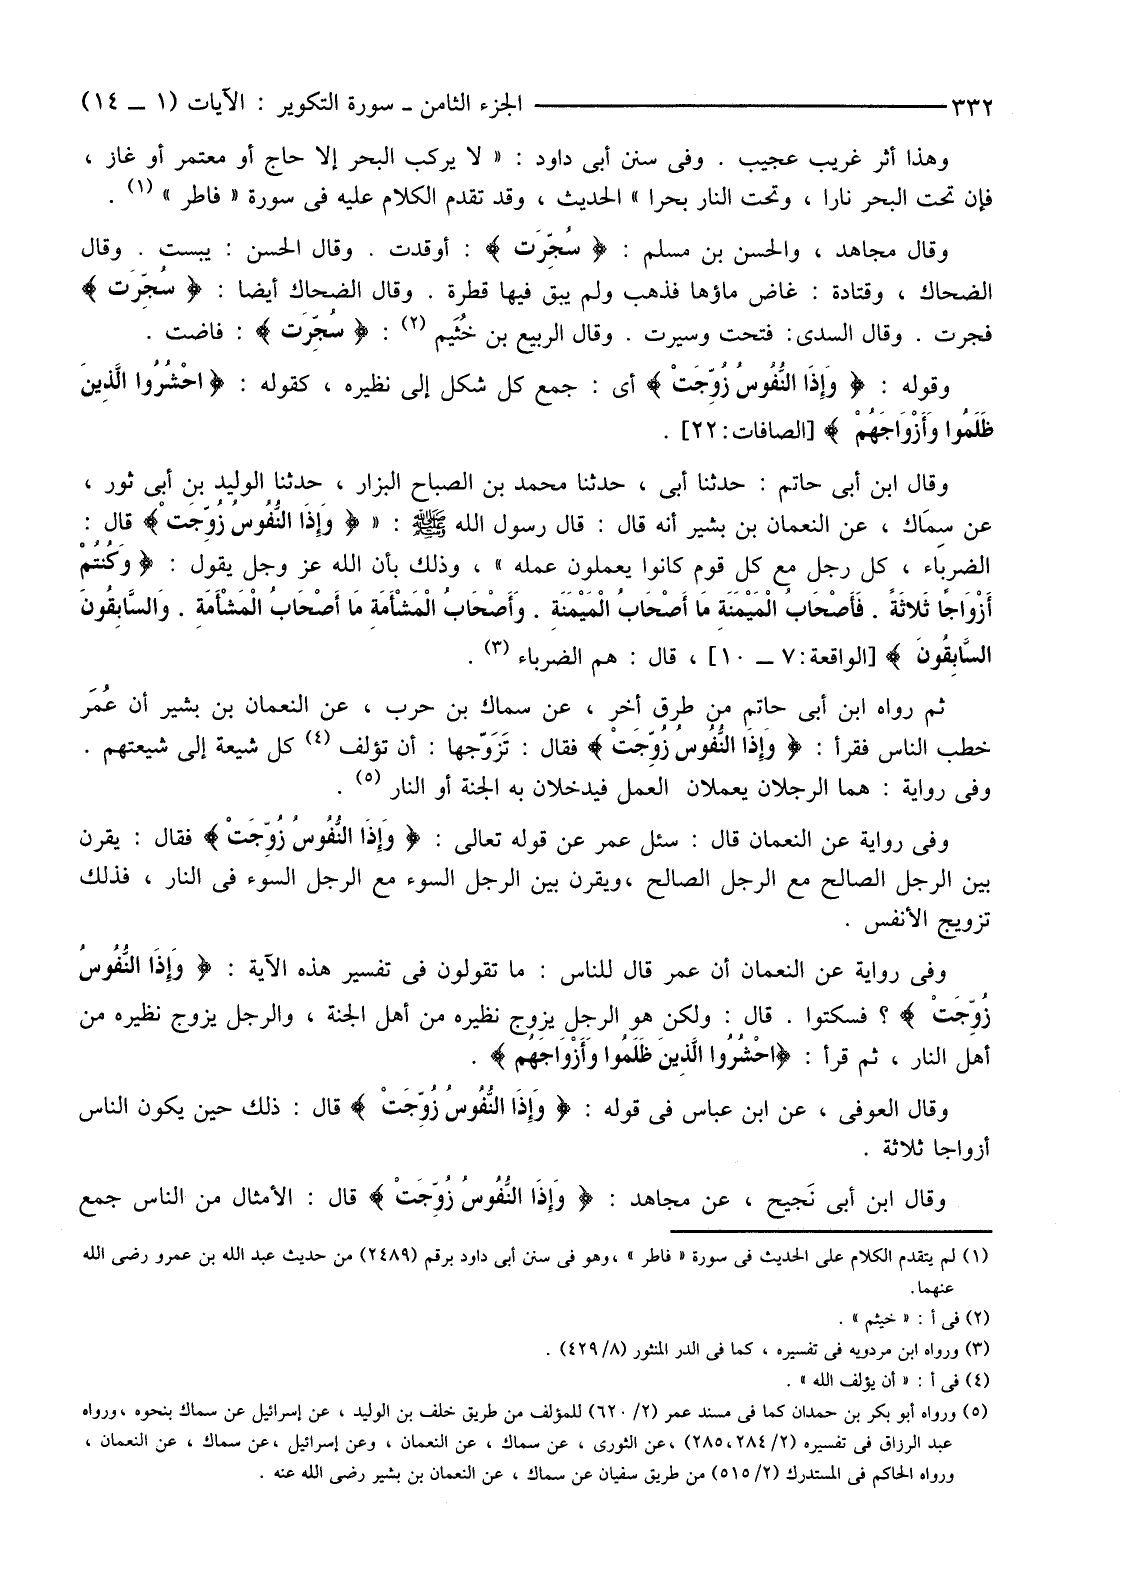 ٣٣٢ ــــــــــــــــــــ الجزء الثامن ـ سورة التكوير : الآيات (١ ــ ١٤)
وهذا أثر غريب عجيب . وفى سنن أبى داود : « لا يركب البحر إلا حاج أو معتمر أو غاز ،
فإن تحت البحر نارا ، وتحت النار بحرا » الحديث ، وقد تقدم الكلام عليه فى سورة « فاطر » (١) .
وقال مجاهد ، والحسن بن مسلم : ﴿ سُجِّرَت ﴾ : أوقدت . وقال الحسن : يبست . وقال
الضحاك ، وقتادة : غاض ماؤها فذهب ولم يبق فيها قطرة . وقال الضحاك أيضا : ﴿ سُجِّرَت ﴾
فجرت . وقال السدى: فتحت وسيرت . وقال الربيع بن خُثَيم (٢) : ﴿ سُجِّرَت ﴾ : فاضت .
وقوله : ﴿ وَإِذَا النُّفُوسُ زُوِّجَتْ ﴾ أى : جمع كل شكل إلى نظيره ، كقوله : ﴿ احْشُرُوا الَّذِينَ
ظَلَمُوا وَأَزْوَاجَهُمْ ﴾ [الصافات:٢٢] .
وقال ابن أبى حاتم : حدثنا أبى ، حدثنا محمد بن الصباح البزار ، حدثنا الوليد بن أبى ثور ،
عن سِمَاك ، عن النعمان بن بشير أنه قال : قال رسول الله ﷺ : « ﴿ وَإِذَا النُّفُوسُ زُوِّجَتْ ﴾ قال :
الضرباء ، كل رجل مع كل قوم كانوا يعملون عمله » ، وذلك بأن الله عز وجل يقول : ﴿ وَكُنتُمْ
أَزْوَاجًا ثَلاثَةً . فَأَصْحَابُ الْمَيْمَنَةِ مَا أَصْحَابُ الْمَيْمَنَةِ . وَأَصْحَابُ الْمَشْأَمَةِ مَا أَصْحَابُ الْمَشْأَمَةِ . وَالسَّابِقُونَ
السَّابِقُونَ ﴾ [الواقعة:٧ ــ ١٠] ، قال : هم الضرباء (٣) .
ثم رواه ابن أبى حاتم من طرق أخر ، عن سماك بن حرب ، عن النعمان بن بشير أن عُمَر
خطب الناس فقرأ : ﴿ وَإِذَا النُّفُوسُ زُوِّجَتْ ﴾ فقال : تَزَوّجها : أن تؤلف (٤) كل شيعة إلى شيعتهم .
وفى رواية : هما الرجلان يعملان العمل فيدخلان به الجنة أو النار (٥) .
وفى رواية عن النعمان قال : سئل عمر عن قوله تعالى : ﴿ وَإِذَا النُّفُوسُ زُوِّجَتْ ﴾ فقال : يقرن
بين الرجل الصالح مع الرجل الصالح ،ويقرن بين الرجل السوء مع الرجل السوء فى النار ، فذلك
تزويج الأنفس .
وفى رواية عن النعمان أن عمر قال للناس : ما تقولون فى تفسير هذه الآية : ﴿ وَإِذَا النُّفُوسُ
زُوِّجَتْ ﴾ ؟ فسكتوا . قال : ولكن هو الرجل يزوج نظيره من أهل الجنة ، والرجل يزوج نظيره من
أهل النار ، ثم قرأ : ﴿احْشُرُوا الَّذِينَ ظَلَمُوا وَأَزْوَاجَهُم ﴾ .
وقال العوفى ، عن ابن عباس فى قوله : ﴿ وَإِذَا النُّفُوسُ زُوِّجَتْ ﴾ قال : ذلك حين يكون الناس
أزواجا ثلاثة .
وقال ابن أبى نَجيح ، عن مجاهد : ﴿ وَإِذَا النُّفُوسُ زُوِّجَتْ ﴾ قال : الأمثال من الناس جمع
(١) لم يتقدم الكلام على الحديث فى سورة « فاطر » ،وهو فى سنن أبى داود برقم (٢٤٨٩) من حديث عبد الله بن عمرو رضى الله
عنهما.
(٢) فى أ : « خيثم » .
(٣) ورواه ابن مردويه فى تفسيره ، كما فى الدر المنثور (٨/ ٤٢٩) .
(٤) فى أ : « أن يؤلف الله » .
(٥) ورواه أبو بكر بن حمدان كما فى مسند عمر (٢/ ٦٢٠) للمؤلف من طريق خلف بن الوليد ، عن إسرائيل عن سماك بنحوه ،ورواه
عبد الرزاق فى تفسيره (٢/ ٢٨٤، ٢٨٥) ،عن الثورى ، عن سماك ، عن النعمان ، وعن إسرائيل ،عن سماك ، عن النعمان ،
ورواه الحاكم فى المستدرك (٢/ ٥١٥) من طريق سفيان عن سماك ، عن النعمان بن بشير رضى الله عنه .